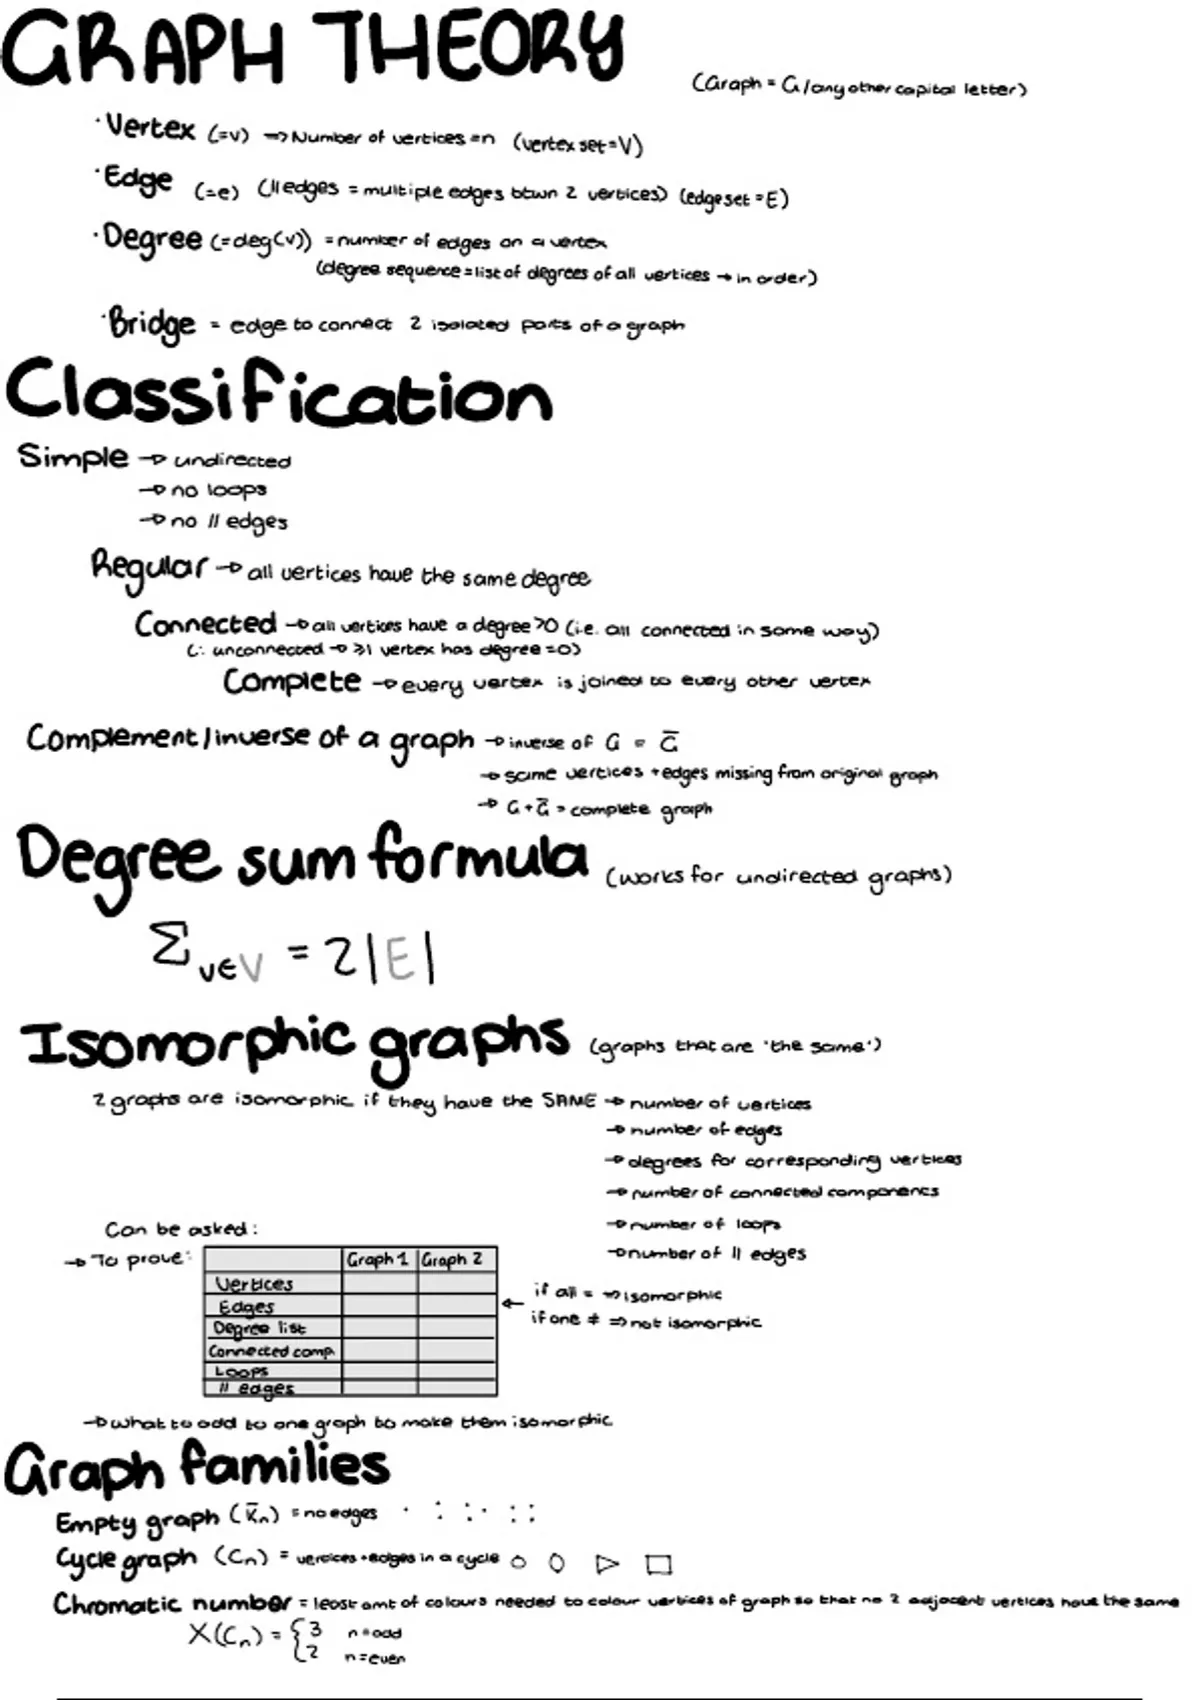 GRAPH THEORY
(Graph = G / any other capital letter)
· Vertex (=v) => Number of vertices = n (vertex set = V)
· Edge (=e) (// edges = multiple edges btwn 2 vertices) (edge set = E)
· Degree (=deg(v)) = number of edges on a vertex
(degree sequence = list of degrees of all vertices → in order)
· Bridge = edge to connect 2 isolated parts of a graph
Classification
Simple → undirected
→ no loops
→ no // edges
Regular → all vertices have the same degree
Connected → all vertices have a degree >0 (i.e. all connected in some way)
(∴ unconnected → ≥1 vertex has degree = 0)
Complete → every vertex is joined to every other vertex
Complement / inverse of a graph → inverse of G = G̅
→ same vertices + edges missing from original graph
→ G + G̅ = complete graph
Degree sum formula (works for undirected graphs)
Σ v∈V = 2|E|
Isomorphic graphs (graphs that are 'the same')
2 graphs are isomorphic if they have the SAME → number of vertices
→ number of edges
→ degrees for corresponding vertices
→ number of connected components
→ number of loops
→ number of // edges
Can be asked:
→ To prove:
Graph 1 Graph 2
Vertices
Edges
Degree list
Connected comp.
Loops
// edges
← if all = => isomorphic
if one ≠ => not isomorphic
→ what to add to one graph to make them isomorphic
Graph families
Empty graph (K̅n) = no edges
Cycle graph (Cn) = vertices + edges in a cycle
Chromatic number = least amt of colours needed to colour vertices of graph so that no 2 adjacent vertices have the same
X(Cn) = { 3 n = odd
2 n = even